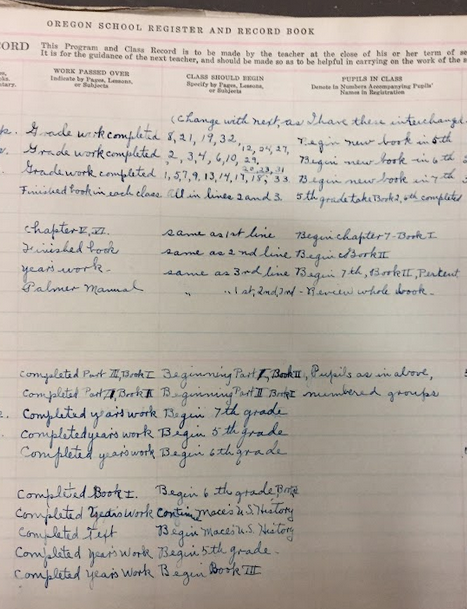 OREGON SCHOOL REGISTER AND RECORD BOOK
CORD This Program and Class Record is to be made by the teacher at the close of his or her term of se
It is for the guidance of the next teacher, and should be made so as to be helpful in carrying on the work of the s
WORK PASSED OVER
Indicate by Pages, Lessons,
or Subjects
CLASS SHOULD BEGIN
Specify by Pages, Lessons,
or Subjects
PUPILS IN CLASS
Denote in Numbers Accompanying Pupils'
Names in Registration
(Change with next, as I have these interchanged
Grade work completed 8, 21, 19, 32, Begin new book in 5th
Grade work completed 2, 3, 4, 6, 10, 29, 12, 24, 27, Begin new book in 6th
Grade work completed 1, 5, 7, 9, 13, 14, 17, 18, 33 20, 23, 31 Begin new book in 7th
Finished book in each class All in lines 2 and 3 5th grade take Book 2, 6th completed
Chapter V, VI. same as 1st line Begin chapter 7 - Book I
Finished book same as 2nd line Begin Book II
years work - same as 3rd line Begin 7th, Book II,
Palmer Manual " " 1st, 2nd, 3rd - Review whole book -
Completed Part III, Book I Beginning Part I, Book II, Pupils as in above,
Completed Part II, Book II Beginning Part III numbered groups
Completed years work Begin 7th grade
Completed years work Begin 5th grade
Completed years work Begin 6th grade
Completed Book I. Begin 6th grade, Book
Completed Years Work Contin. Mace's U.S. History
Completed Tift Begin Mace's U.S. History
Completed Years Work Begin 5th grade -
Completed Years Work Begin Book III